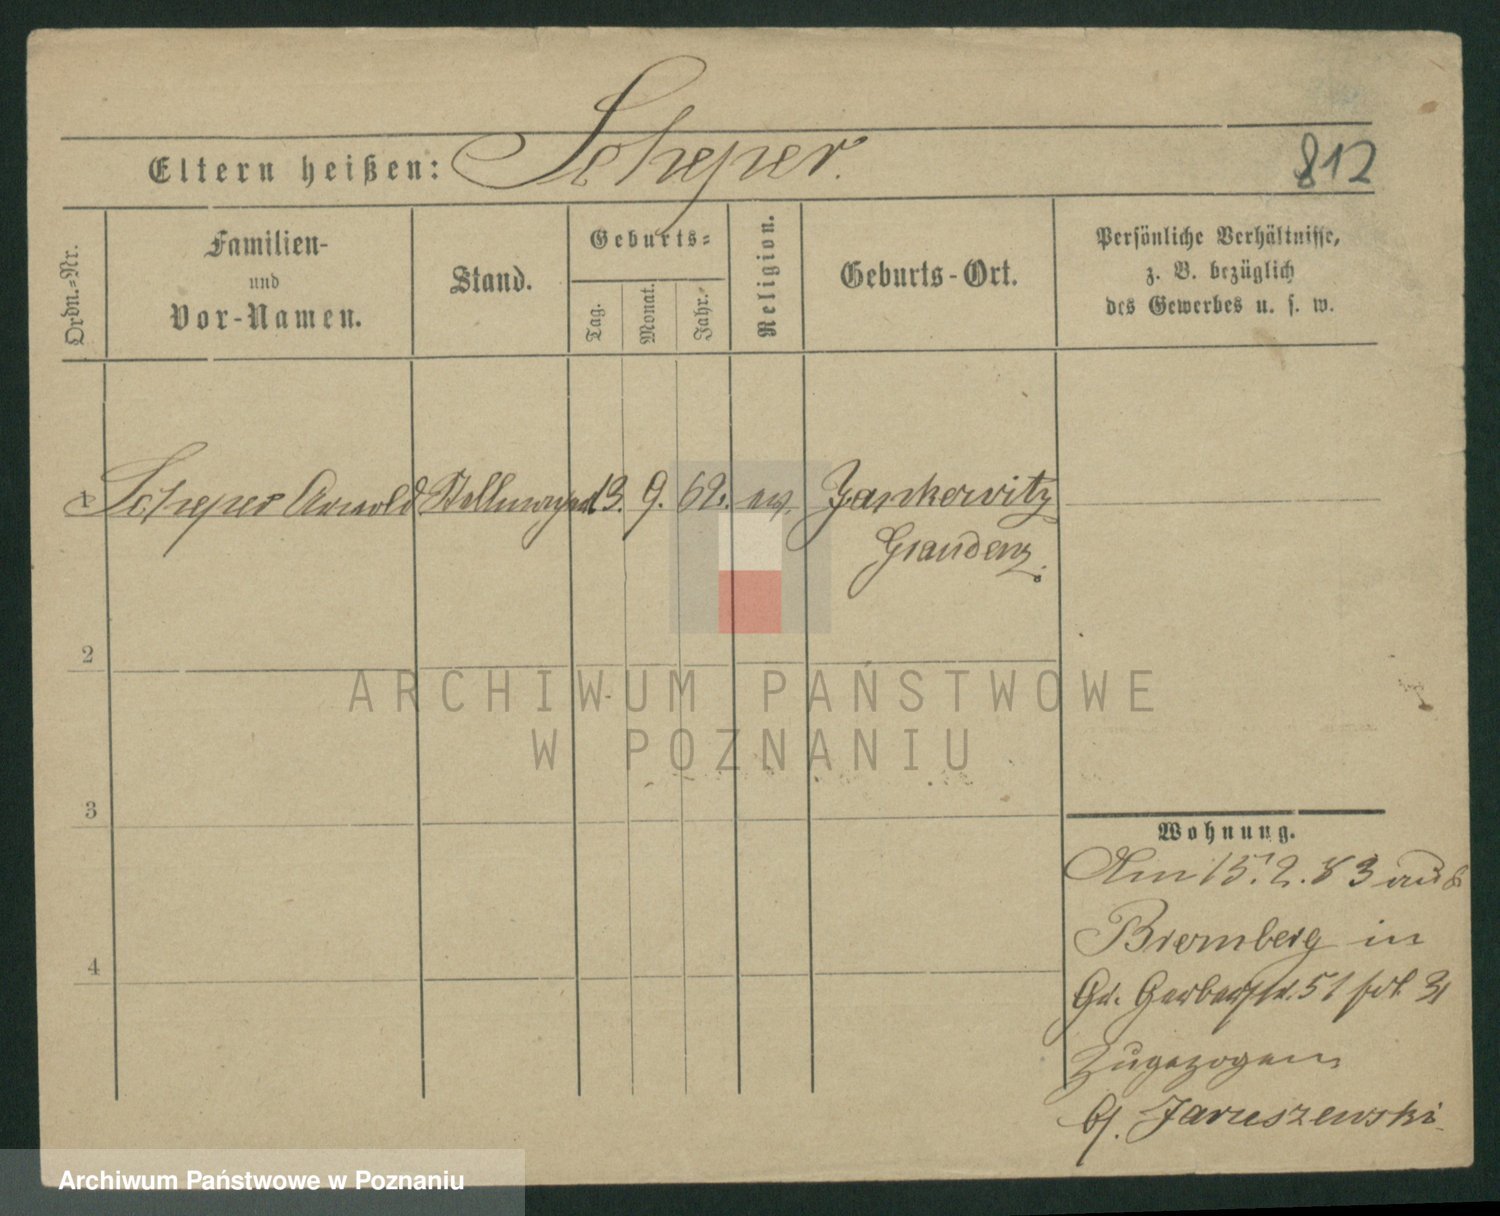 Eltern heißen: Scheper.
812
Ordn.=Nr.
Familien-
und
Vor-Namen.
Stand.
Geburts=
Tag.
Monat.
Jahr.
Religion.
Geburts-Ort.
Persönliche Verhältnisse,
z. B. bezüglich
des Gewerbes u. s. w.
1 Scheper Arnold Stellmacher 13. 9. 62. ev. Jankowitz
Graudenz.
2
ARCHIWUM PAŃSTWOWE
W POZNANIU
3
Wohnung.
Am 15.2.83 aus
Bromberg in
4
Gr. Gerberstr. 51
Zugezogen
b/. Jaruszewski
Archiwum Państwowe w Poznaniu